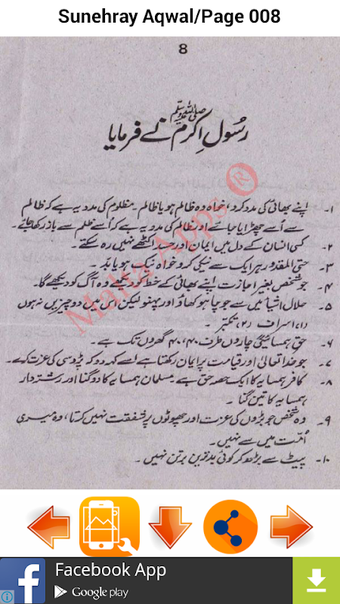 Sunehray Aqwal/Page 008
8
رسُول اکرم ﷺ نے فرمایا
۱- اپنے بھائی کی مدد کرو خواہ وہ ظالم ہو یا ظالم۔ مظلوم کی مدد یہ ہے کہ ظالم
سے اُسے چھڑایا جائے اور ظالم کی مدد یہ ہے کہ اُسے ظلم سے باز رکھا جائے۔
۲- کسی انسان کے دل میں ایمان اور حسد اکٹھے نہیں رہ سکتے۔
۳- حتی المقدور ہر ایک سے نیکی کرو خواہ نیک ہو یا بد۔
۴- جو شخص بغیر اجازت اپنے بھائی کے خط کو دیکھے وہ آگ کو دیکھے گا۔
۵- حلال اشیا میں سے جو چاہو کھاؤ اور پہنو لیکن اس میں دو چیزیں نہ ہوں
(۱) اسراف (۲) تکبر۔
۶- حق ہمسائیگی چاروں طرف ۴۰-۴۰ گھروں تک ہے۔
۷- جو خدا تعالیٰ اور قیامت پر ایمان رکھتا ہے اُسے کہہ دو کہ پڑوسی کی عزت کرے۔
۸- کافر ہمسایہ کا ایک حصہ حق ہے۔ مسلمان ہمسایہ کا دوگنا اور رشتہ دار
ہمسایہ کا تین گنا۔
۹- وہ شخص جو بڑوں کی عزت اور چھوٹوں پر شفقت نہیں کرتا، وہ میری
اُمت میں سے نہیں۔
۱۰- پیٹ سے بڑھ کر کوئی بدترین برتن نہیں۔
Malta Apps ®
Facebook App
Google play